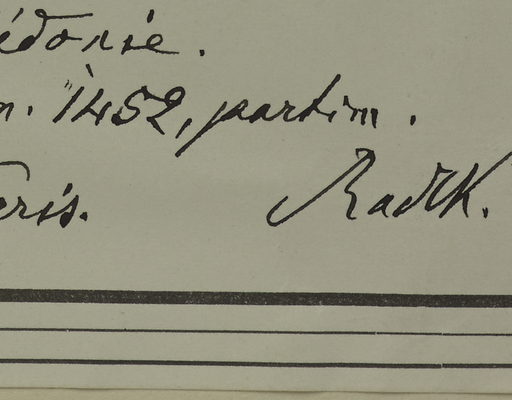 édonie.
n. 1452, partim.
eris. Radlk.